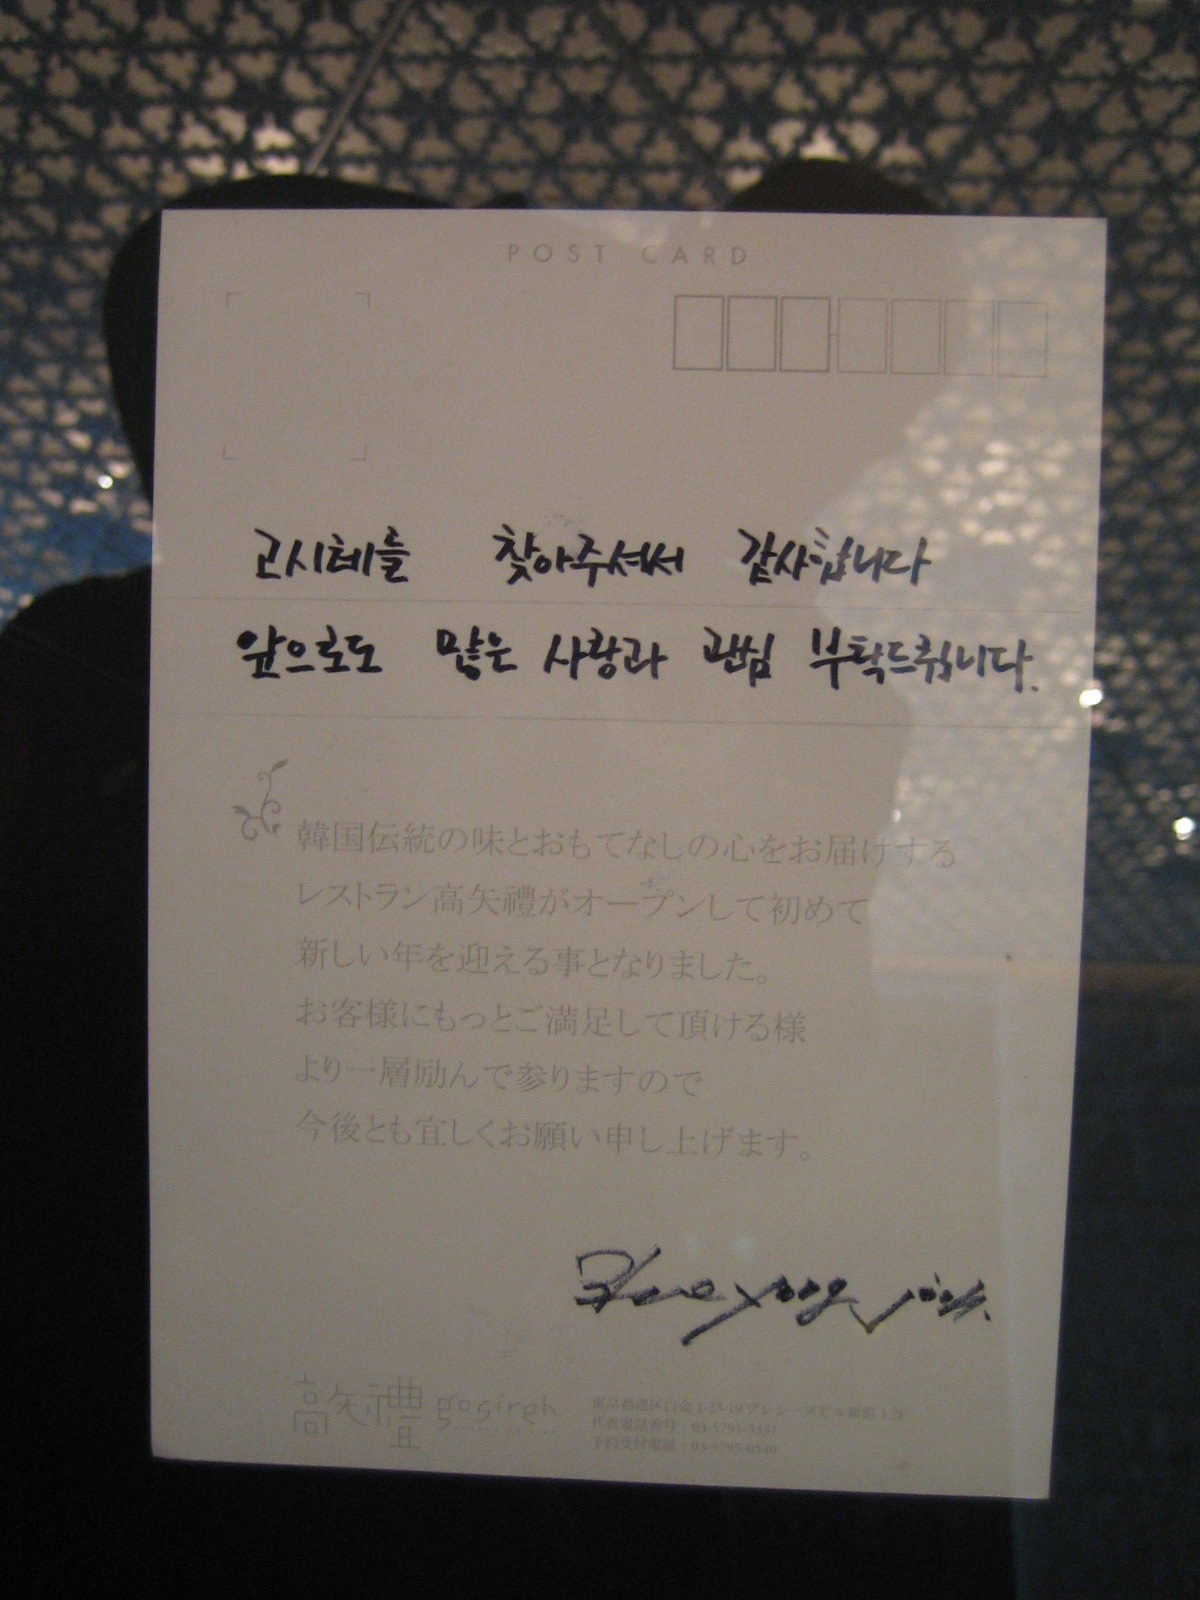 POST CARD
고시레를 찾아주셔서 감사합니다
앞으로도 많은 사랑과 관심 부탁드립니다.
韓国伝統の味とおもてなしの心をお届けする
レストラン高矢禮がオープンして初めて
新しい年を迎える事となりました。
お客様にもっとご満足して頂ける様
より一層励んで参りますので
今後とも宜しくお願い申し上げます。
高矢禮 gosireh
東京都港区白金1-25-19プレシーズビル新館1.2F
代表電話番号 : 03-5791-3351
予約受付電話 :